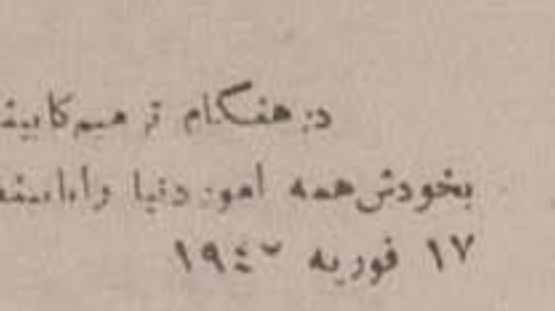 در هنگام ترمیم کابینه
بخودش همه امور دنیا را
۱۷ فوریه